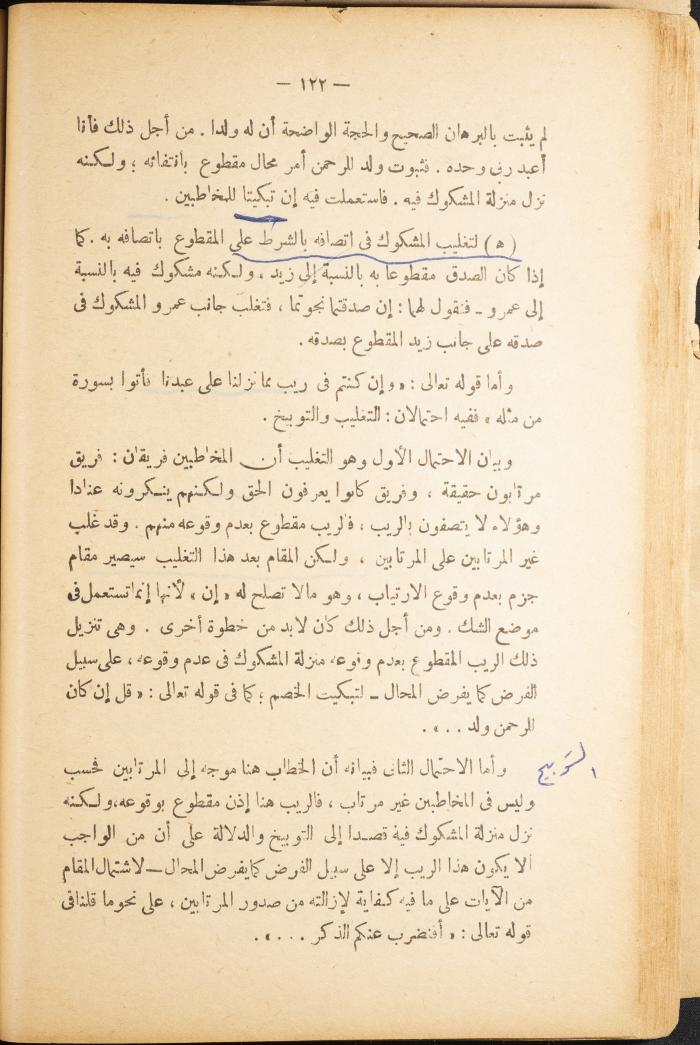 — ١٢٢ —
لم يثبت بالبرهان الصحيح والحجة الواضحة أن له ولدا . من أجل ذلك فأنا
أعبد ربى وحده . فثبوت ولد للرحمن أمر محال مقطوع بانتفائه ؛ ولكنه
نزل منزلة المشكوك فيه . فاستعملت فيه إن تبكيتا للمخاطبين .
( ه ) لتغليب المشكوك فى اتصافه بالشرط على المقطوع باتصافه به . كما
إذا كان الصدق مقطوعا به بالنسبة إلى زيد ، ولكنه مشكوك فيه بالنسبة
إلى عمرو ـ فنقول لهما : إن صدقتما نجوتما ، فتغلب جانب عمرو المشكوك فى
صدقه على جانب زيد المقطوع بصدقه .
وأما قوله تعالى : « وإن كنتم فى ريب مما نزلنا على عبدنا فأتوا بسورة
من مثله » ففيه احتمالان : التغليب والتوبيخ .
وبيان الاحتمال الأول وهو التغليب أن المخاطبين فريقان : فريق
مرتابون حقيقة ، وفريق كانوا يعرفون الحق ولكنهم ينكرونه عنادا
وهؤلاء لا يتصفون بالريب ، فالريب مقطوع بعدم وقوعه منهم . وقد غلب
غير المرتابين على المرتابين ، ولكن المقام بعد هذا التغليب سيصير مقام
جزم بعدم وقوع الارتياب ، وهو مالا تصلح له « إن » لأنها إنما تستعمل فى
موضع الشك . ومن أجل ذلك كان لابد من خطوة أخرى . وهى تنزيل
ذلك الريب المقطوع بعدم وقوعه منزلة المشكوك فى عدم وقوعه ، على سبيل
الفرض كما يفرض المحال ـ لتبكيت الخصم ؛ كما فى قوله تعالى : « قل إن كان
للرحمن ولد . . » .
وأما الاحتمال الثانى فبيانه أن الخطاب هنا موجه إلى المرتابين فحسب
التوبيخ
وليس فى المخاطبين غير مرتاب ، فالريب هنا إذن مقطوع بوقوعه، ولكنه
نزل منزلة المشكوك فيه قصدا إلى التوبيخ والدلالة على أن من الواجب
ألا يكون هذا الريب إلا على سبيل الفرض كما يفرض المحال — لاشتمال المقام
من الآيات على ما فيه كفاية لإزالته من صدور المرتابين ، على نحو ما قلنا فى
قوله تعالى : « أفنضرب عنكم الذكر . . . » .